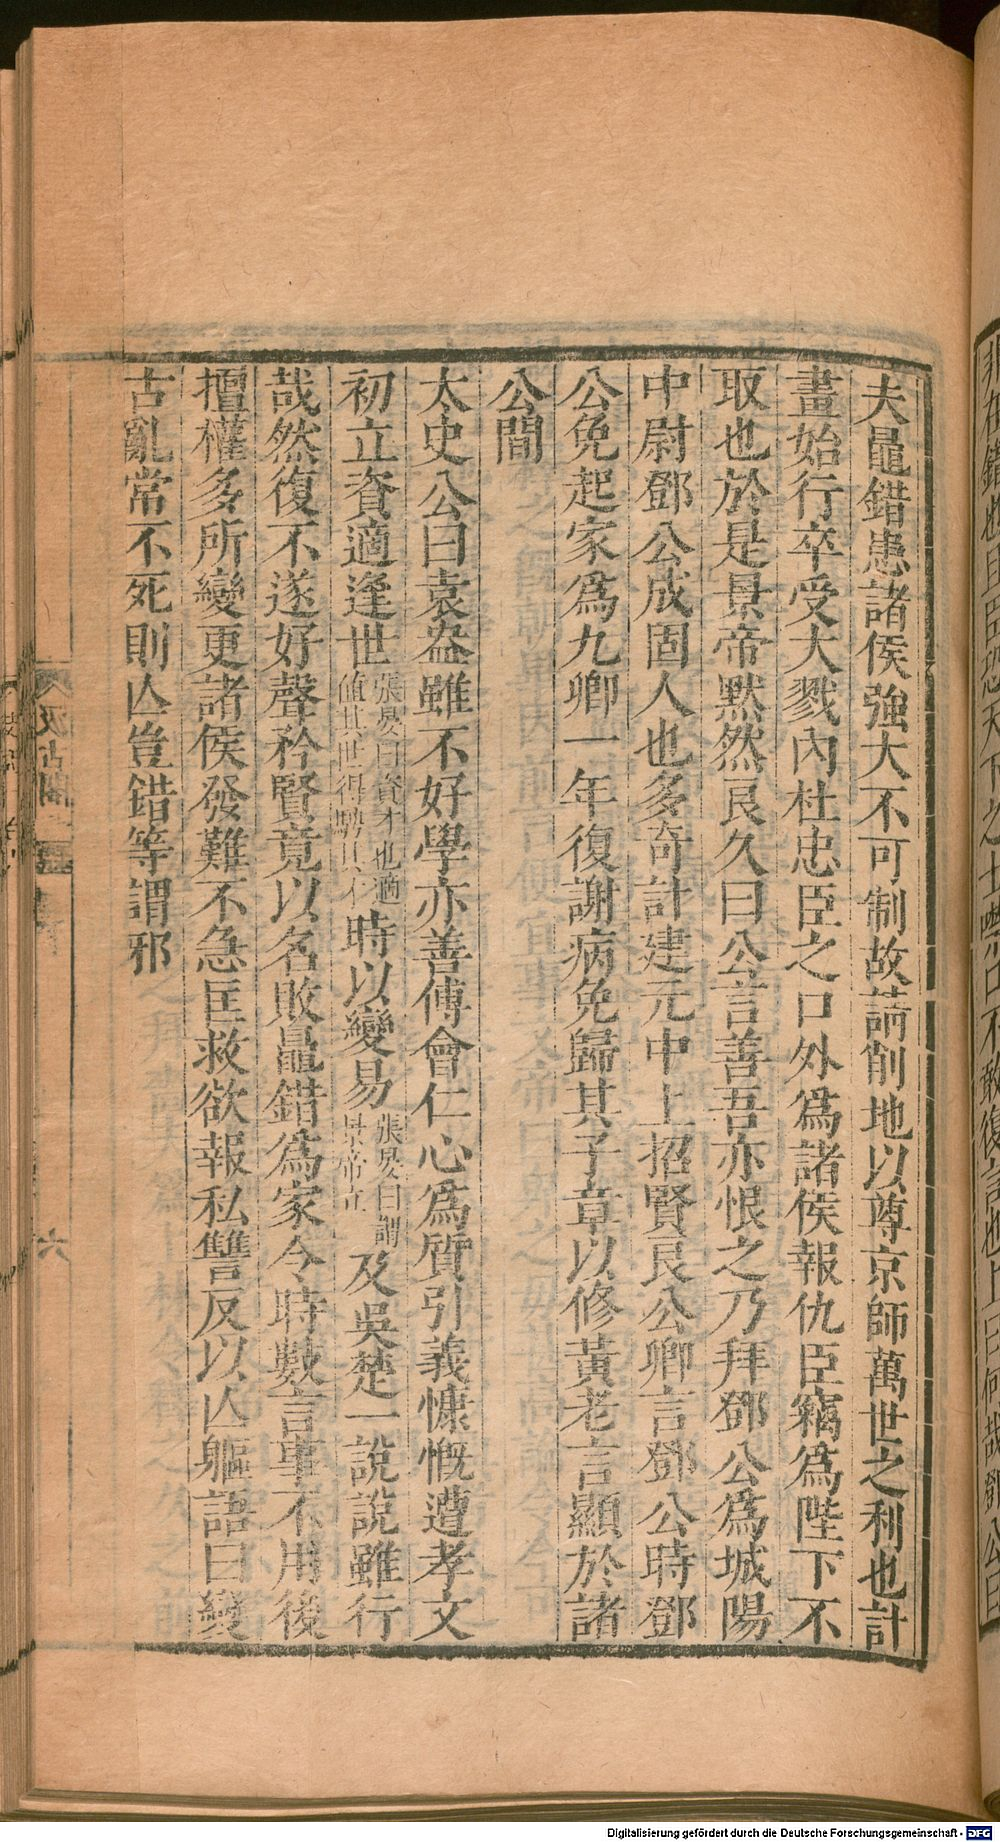 夫鼂錯患諸侯強大不可制故請削地以尊京師萬世之利也計
畫始行卒受大戮內杜忠臣之口外爲諸侯報仇臣竊爲陛下不
取也於是景帝默然良久曰公言善吾亦恨之乃拜鄧公爲城陽
中尉鄧公成固人也多奇計建元中上招賢良公卿言鄧公時鄧
公免起家爲九卿一年復謝病免歸其子章以修黃老言顯於諸
公間
太史公曰袁盎雖不好學亦善傅會仁心爲質引義慷慨遭孝文
初立資適逢世張晏曰資才也適值其世得騁其才時以變易張晏曰謂景帝立及吳楚一說說雖行
哉然復不遂好聲矜賢竟以名敗鼂錯爲家令時數言事不用後
擅權多所變更諸侯發難不急匡救欲報私讐反以亾軀語曰變
古亂常不死則亾豈錯等謂邪
六
Digitalisierung gefördert durch die Deutsche Forschungsgemeinschaft - DFG